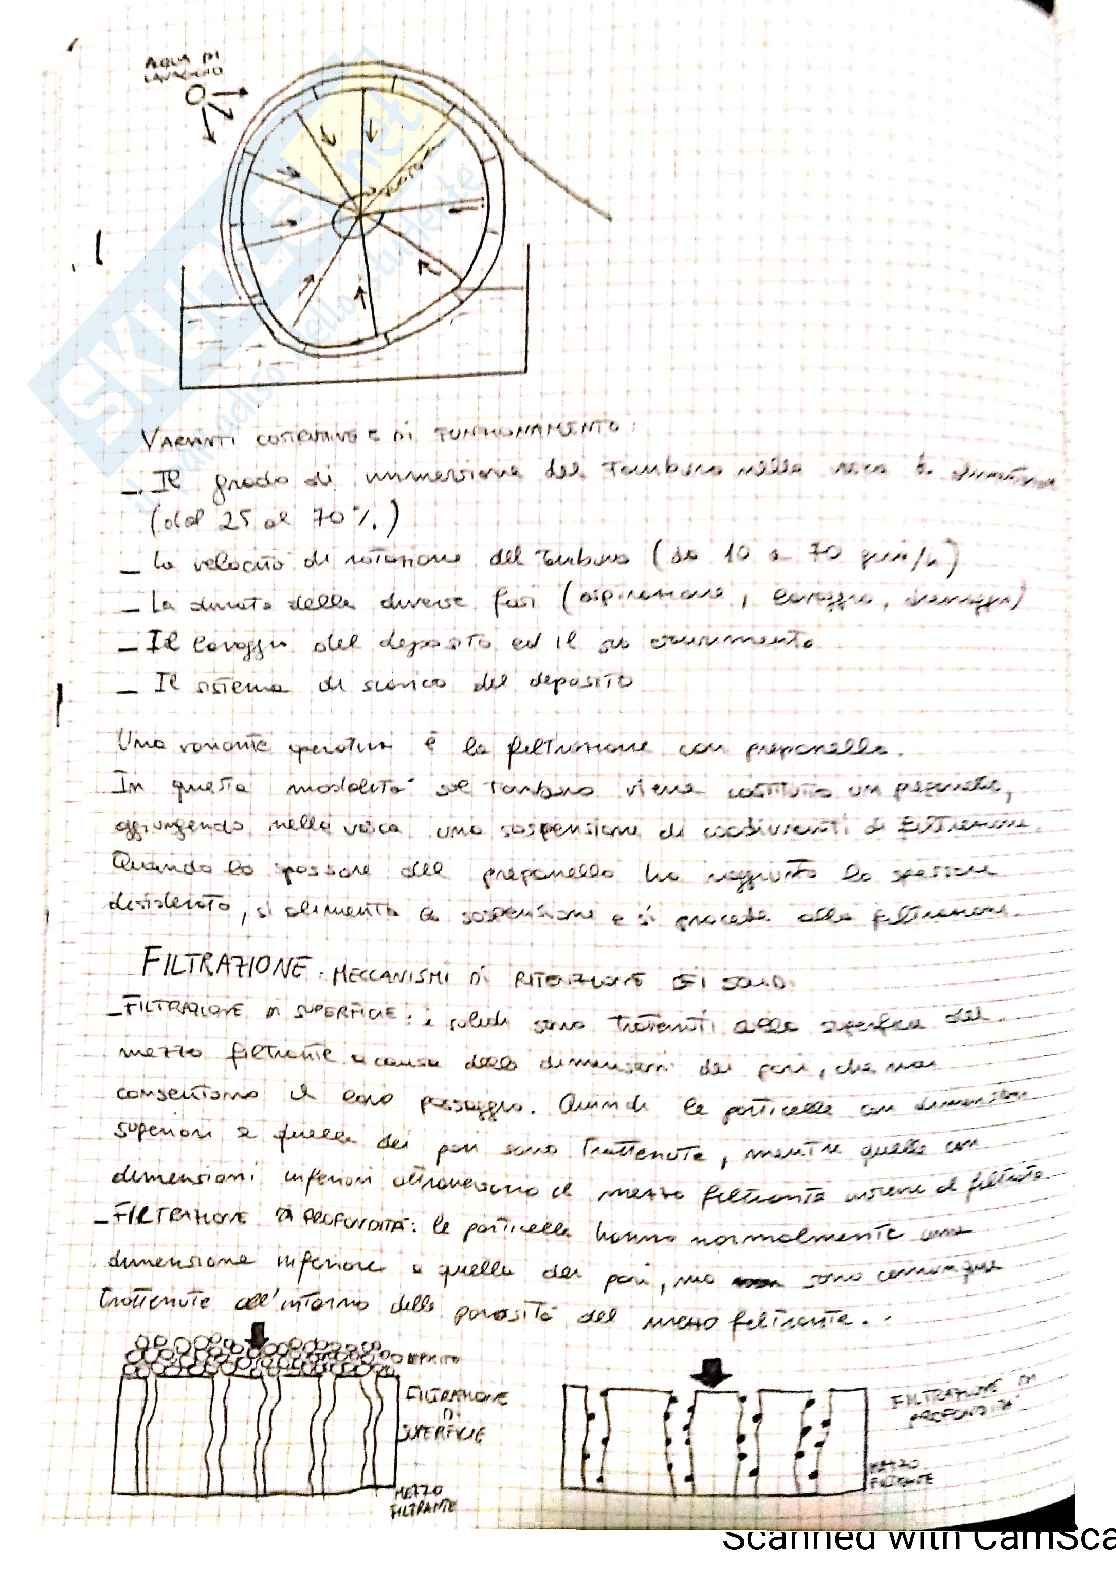 AQUA DI
LAVAGGIO
SKUOLA.net
VARIANTI COSTRUTTIVE E DI FUNZIONAMENTO:
— Il grado di immersione del tamburo nella vasca di
(dal 25 al 70%)
— La velocità di rotazione del tamburo (da 10 a 70 giri/h)
— La durata delle diverse fasi (aspirazione, lavaggio, drenaggio)
— Il lavaggio del deposito ed il suo esaurimento
— Il sistema di scarico del deposito
Una variante operativa è la filtrazione con prepanello.
In questa modalità sul tamburo viene costituito un prepanello,
aggiungendo nella vasca una sospensione di coadiuvanti di filtrazione.
Quando lo spessore del prepanello ha raggiunto lo spessore
desiderato, si alimenta la sospensione e si procede alla filtrazione.
FILTRAZIONE: MECCANISMI DI RITENZIONE DEI SOLIDI
— FILTRAZIONE IN SUPERFICIE: i solidi sono trattenuti alla superficie del
mezzo filtrante a causa delle dimensioni dei pori, che non
consentono il loro passaggio. Quindi le particelle con dimensioni
superiori a quelle dei pori sono trattenute, mentre quelle con
dimensioni inferiori attraversano il mezzo filtrante insieme al filtrato
— FILTRAZIONE DI PROFONDITÀ: le particelle hanno normalmente una
dimensione inferiore a quella dei pori, ma sono comunque
trattenute all'interno delle porosità del mezzo filtrante.
DEPOSITO
FILTRAZIONE
DI
SUPERFICIE
MEZZO
FILTRANTE
FILTRAZIONE DI
PROFONDITÀ
MEZZO
FILTRANTE
Scanned with CamSca